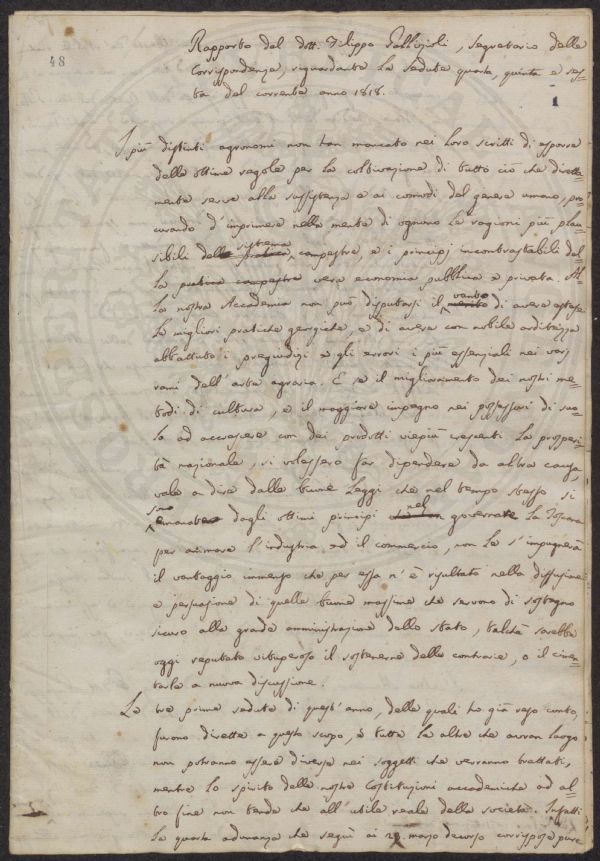 48
Rapporto del dott. Filippo Gallizioli, Segretario delle
Corrispondenze, riguardante le sedute quarta, quinta e ses-
ta del corrente anno 1818.
1
I più distinti agronomi non han mancato nei loro scritti di esporre
delle ottime regole per la coltivazione di tutto ciò che diretta-
mente serve alla sussistenza e ai comodi del genere umano, pro-
curando d'imprimere nella mente di ognuno le ragioni più plau-
sibili del sistema campestre, e i principj incontrastabili del-
la pratica campestre vera economia pubblica e privata. Al-
la nostra Accademia non può disputarsi il vanto di avere estese
le migliori pratiche georgiche, e di avere con nobile arditezza
abbattuto i pregiudizj e gli errori i più essenziali nei varj
rami dell'arte agraria. E se il miglioramento dei nostri me-
todi di cultura, e il maggiore impegno nei possessori di suo-
lo ad accrescere con dei prodotti viepiù crescenti la prosperi-
tà nazionale, si volessero far dipendere da altra causa
vale a dire dalle buone Leggi che nel tempo stesso si
sono emanate dagli ottimi principi nel governare la Toscana
per animare l'industria, ed il commercio, non le s'impugnerà
il vantaggio immenso che per essa n'è risultato nella diffusione
e persuasione di quelle buone massime che servono di sostegno
sicuro alla grande amministrazione dello stato, talchè sarebbe
oggi reputato vituperoso il sostenerne delle contrarie, o il cimen-
tarle a nuova discussione.
Le tre prime sedute di quest'anno, delle quali ho già reso conto,
furono dirette a questo scopo, e tutte le altre che avran luogo
non potranno essere diverse nei soggetti che verranno trattati,
mentre lo spirito delle nostre Costituzioni accademiche ad al-
tro fine non tende che all'utile reale della società. Infatti
la quarta adunanza che seguì ai marzo decorso corrispose pure